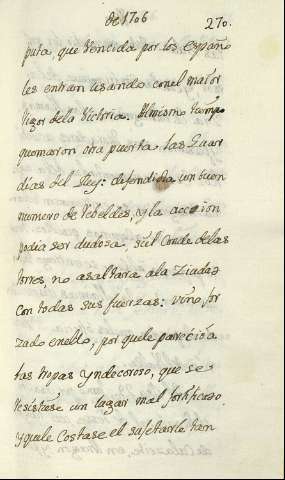 de 1706
270.
puta, que vencida por los españo
les entran usando con el maior
rigor dela Victoria. Almismo tiempo
quomaron otra puerta las Guar
dias del Rey: difendida un buen
numero de Rebeldes, y la accion
podia ser dudosa, si el Conde delas
torres, no asaltara ala Ziudad
con todas sus fuerzas: vino for
zado en ello, por que le parecia a
las tropas yndecoroso, que se
resistiese un lugar mal fortificado.
y que le Costase el sujetarle tan